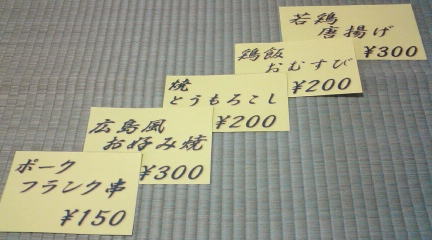 若鶏
唐揚げ
¥300
鶏飯
おむすび
¥200
焼
とうもろこし
¥200
広島風
お好み焼
¥300
ポーク
フランク串
¥150